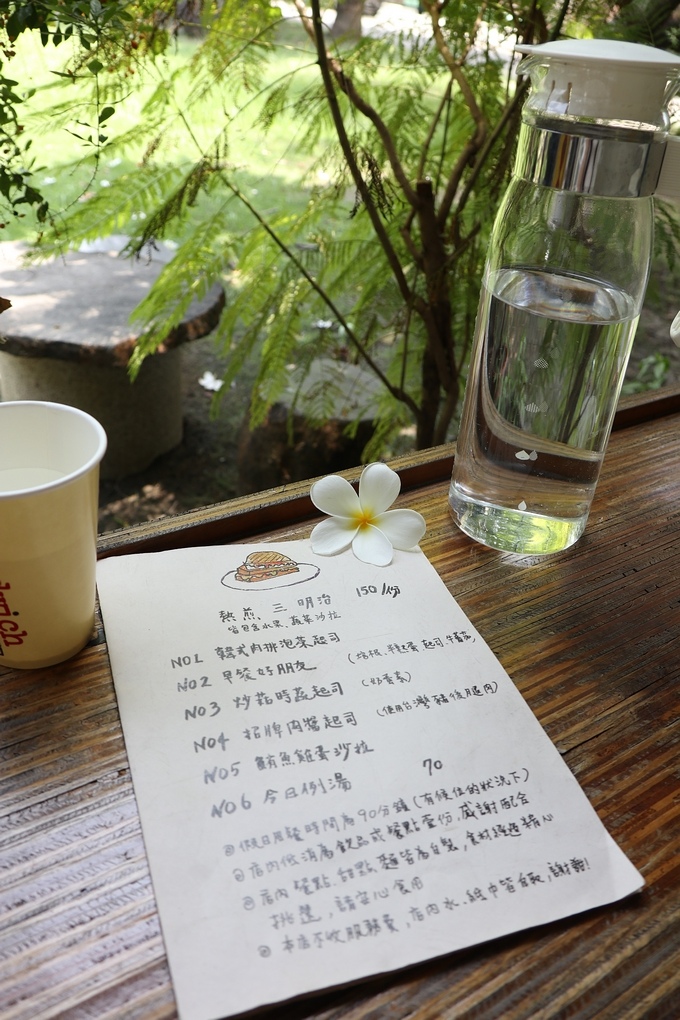 熱煎三明治 150/份
皆包含水果、蔬菜沙拉
NO1 韓式肉排泡菜起司
NO2 早餐好朋友 (培根、平飛蛋、起司、牛蕃茄)
NO3 炒菇時蔬起司 (奶蛋素)
NO4 招牌肉醬起司 (使用台灣豬後腿肉)
NO5 鮪魚雞蛋沙拉
NO6 今日例湯 70
假日用餐時間為90分鐘(有候位的狀況下)
店內低消為飲品或餐點壹份,感謝配合
店內餐點、甜點、麵皆為自製,食材經過精心
挑選,請安心食用
本店不收服務費,店內水、紙巾皆自取,謝謝!